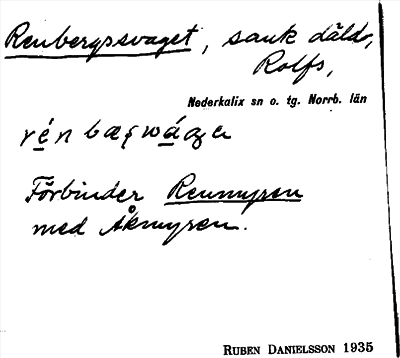 Renbergssvaget, sank däld,
Rolfs,
Nederkalix sn o. tg. Norrb. län
Förbinder Renmyren
med Åkmyren.
RUBEN DANIELSSON 1935